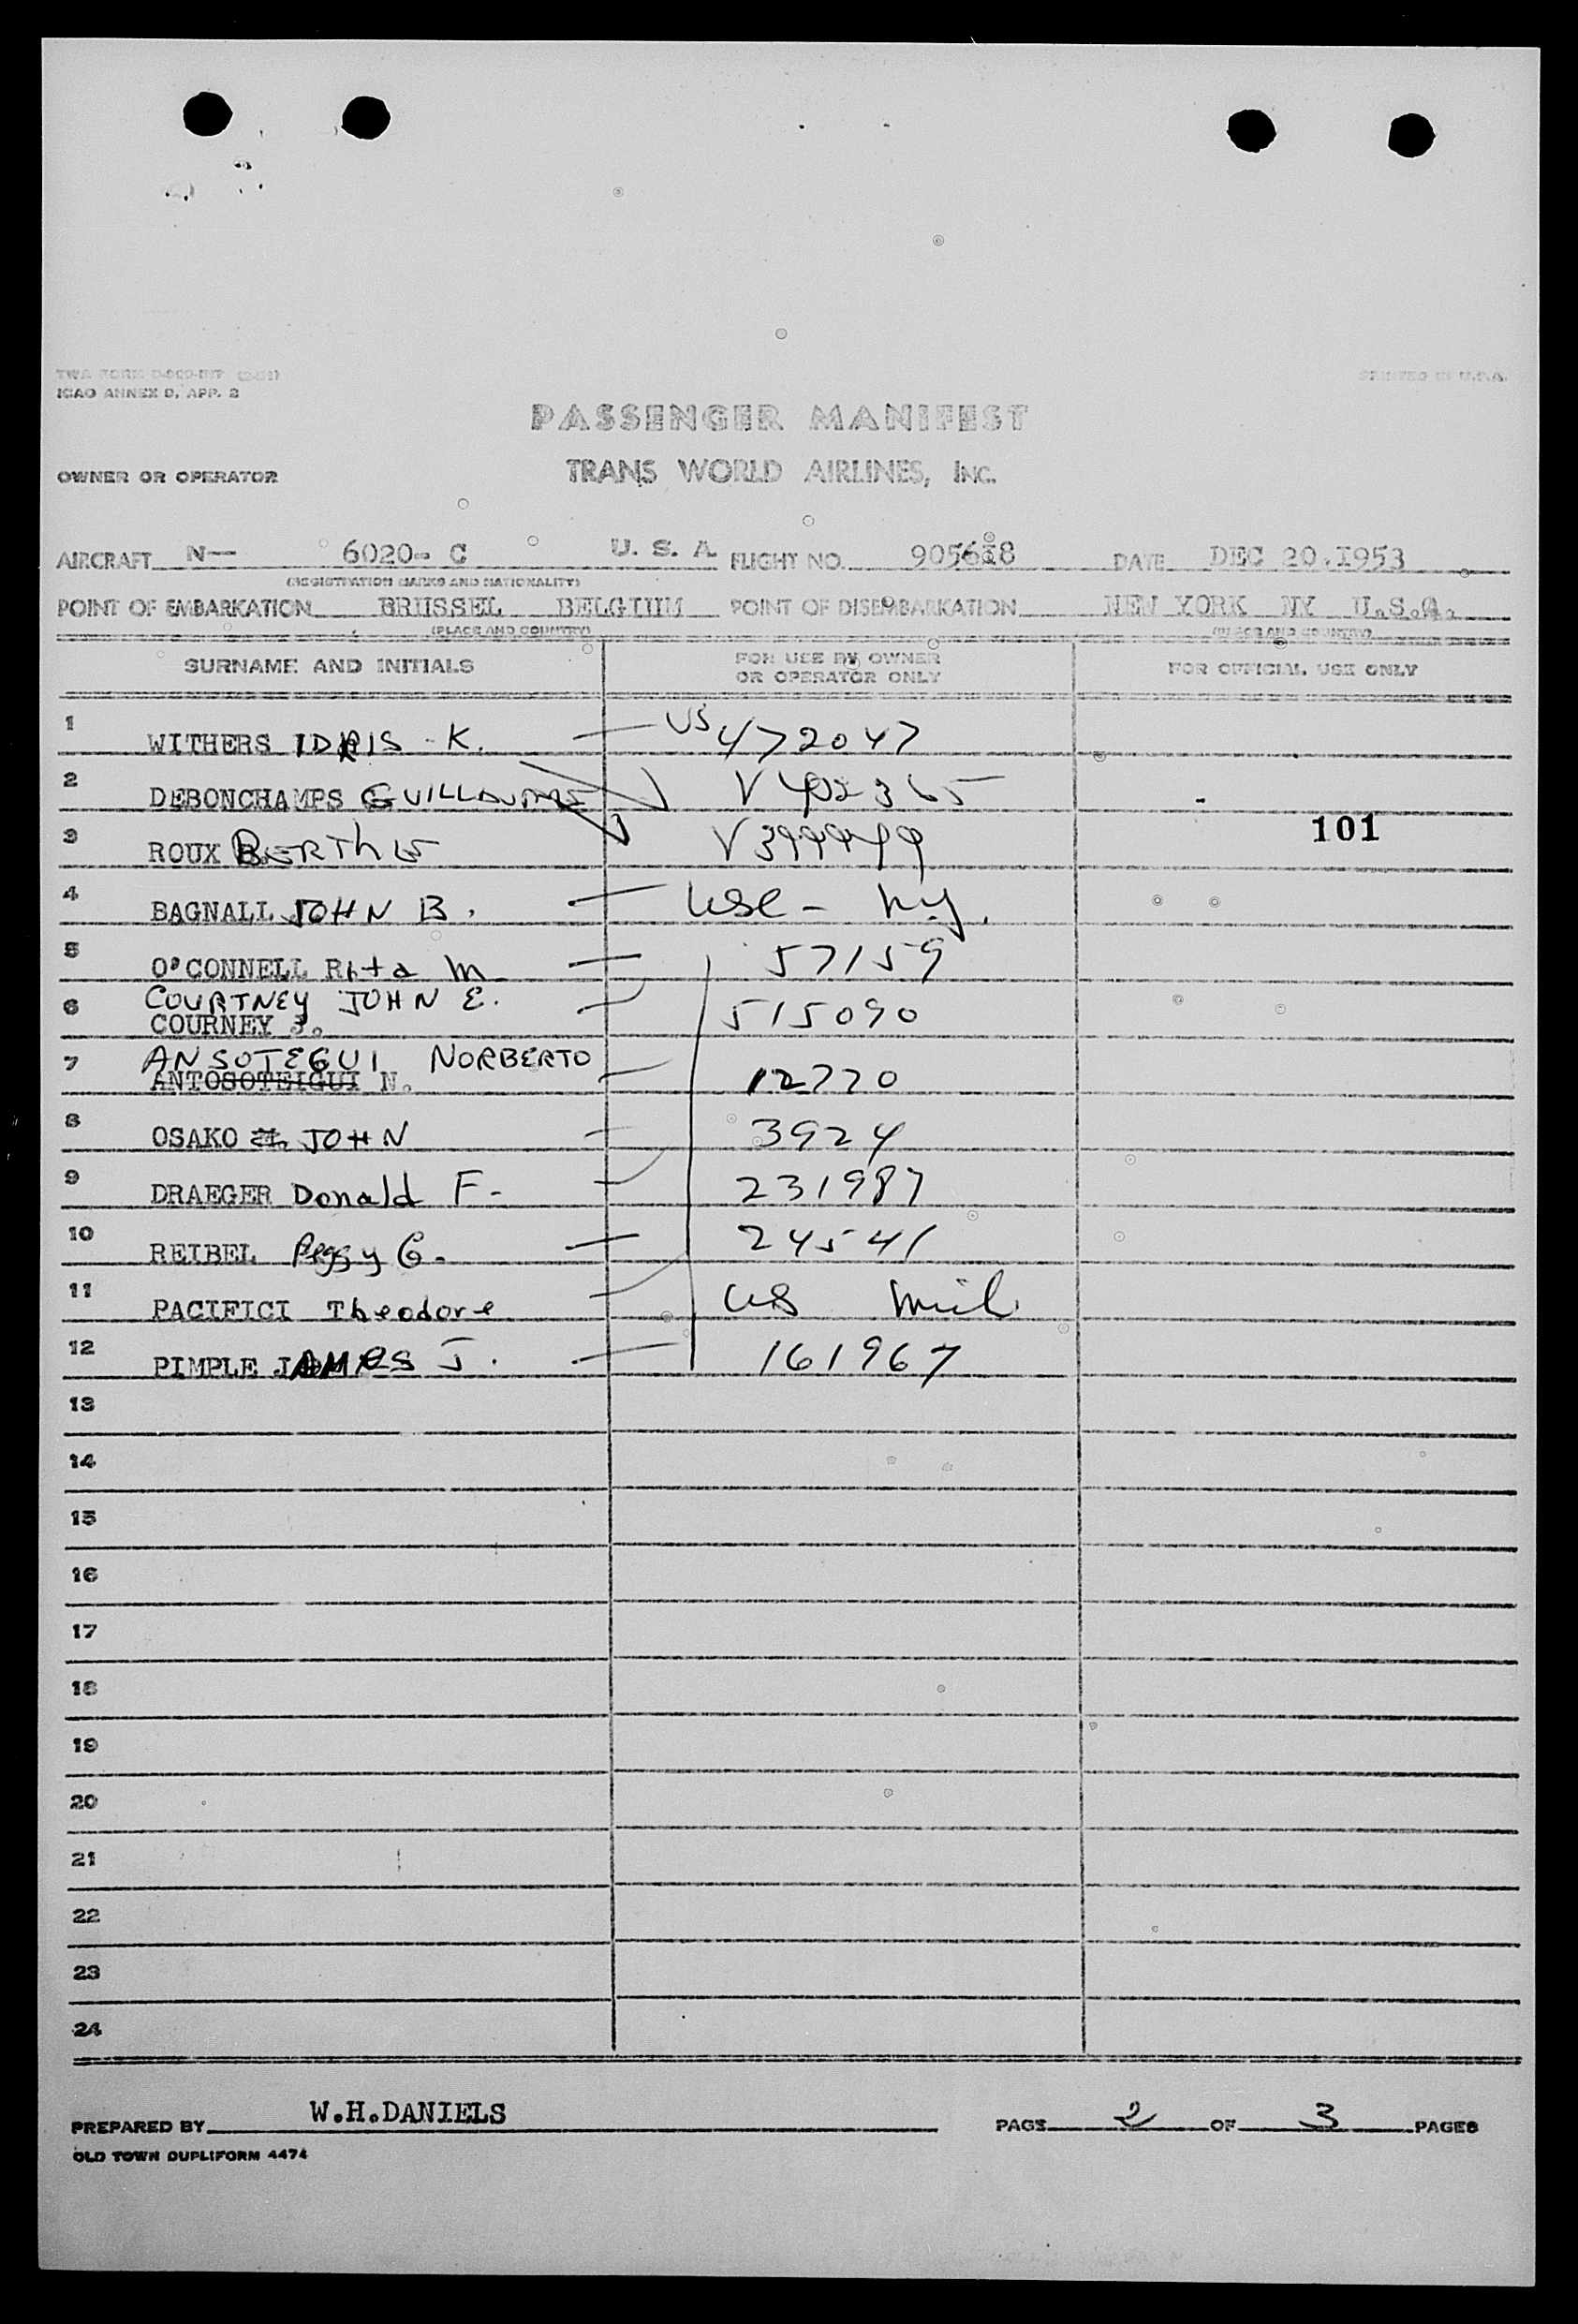 ICAO ANNEX D, APP. 2
PRINTED IN U.S.A.
PASSENGER MANIFEST
OWNER OR OPERATOR TRANS WORLD AIRLINES, INC.
AIRCRAFT N— 6020- C U. S. A. FLIGHT NO. DATE DEC 20.I953
(REGISTRATION MARKS AND NATIONALITY)
POINT OF EMBARKATION BRUSSEL BELGIUM POINT OF DISEMBARKATION NEW YORK NY U.S.A.
(PLACE AND COUNTRY) (PLACE AND COUNTRY)
SURNAME AND INITIALS FOR USE BY OWNER OR OPERATOR ONLY FOR OFFICIAL USE ONLY
1 WITHERS IDRIS K. — US 472047
2 DEBONCHAMPS GUILLAUME V 402365
3 ROUX BERTHE V 399999 101
4 BAGNALL JOHN B. — use - ny.
5 O'CONNELL Rita M — 57159
6 COURTNEY JOHN E. 515090
COURNEY J.
7 ANSOTEGUI NORBERTO 12770
ANTOSOTEIGUI N.
8 OSAKO JOHN 3924
9 DRAEGER Donald F. 231987
10 REIBEL Peggy G. — 24541
11 PACIFICI Theodore US Mil
12 PIMPLE JAMES J. — 161967
13
14
15
16
17
18
19
20
21
22
23
24
PREPARED BY W.H.DANIELS PAGE 2 OF 3 PAGES
OLD TOWN DUPLIFORM 4474